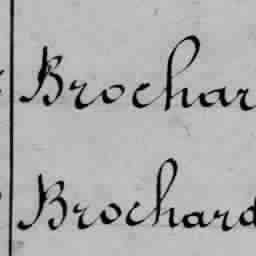 Brochar
Brochard